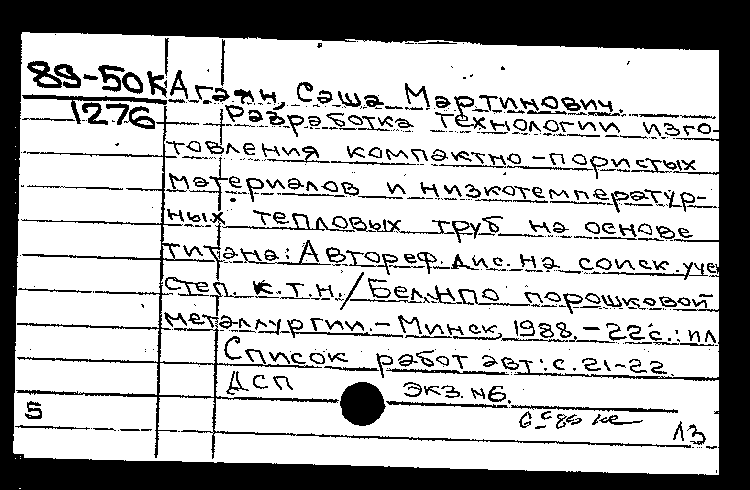 89-50К Агаян, Саша Мартинович.
1276 Разработка технологии изго-
товления компактно-пористых
материалов и низкотемператур-
ных тепловых труб на основе
титана: Автореф. дис. на соиск. учен
степ. к.т.н./Бел.НПО порошковой
металлургии.-Минск, 1988.-22с.: ил
Список работ авт: с. 21-22.
ДСП ЭКЗ. №6.
5
13